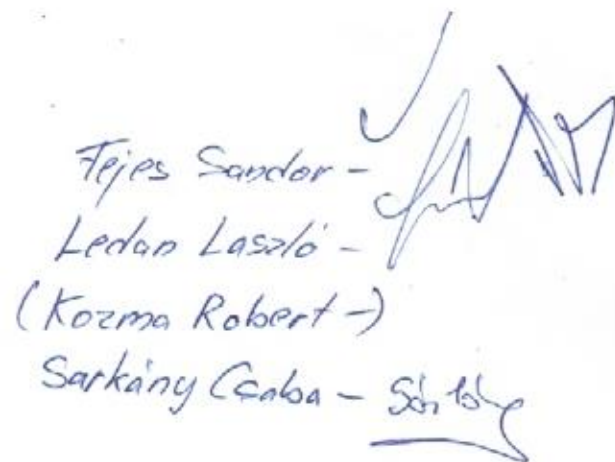 Fejes Sandor -
Ledan Laszló -
(Kozma Robert -)
Sarkány Csaba -